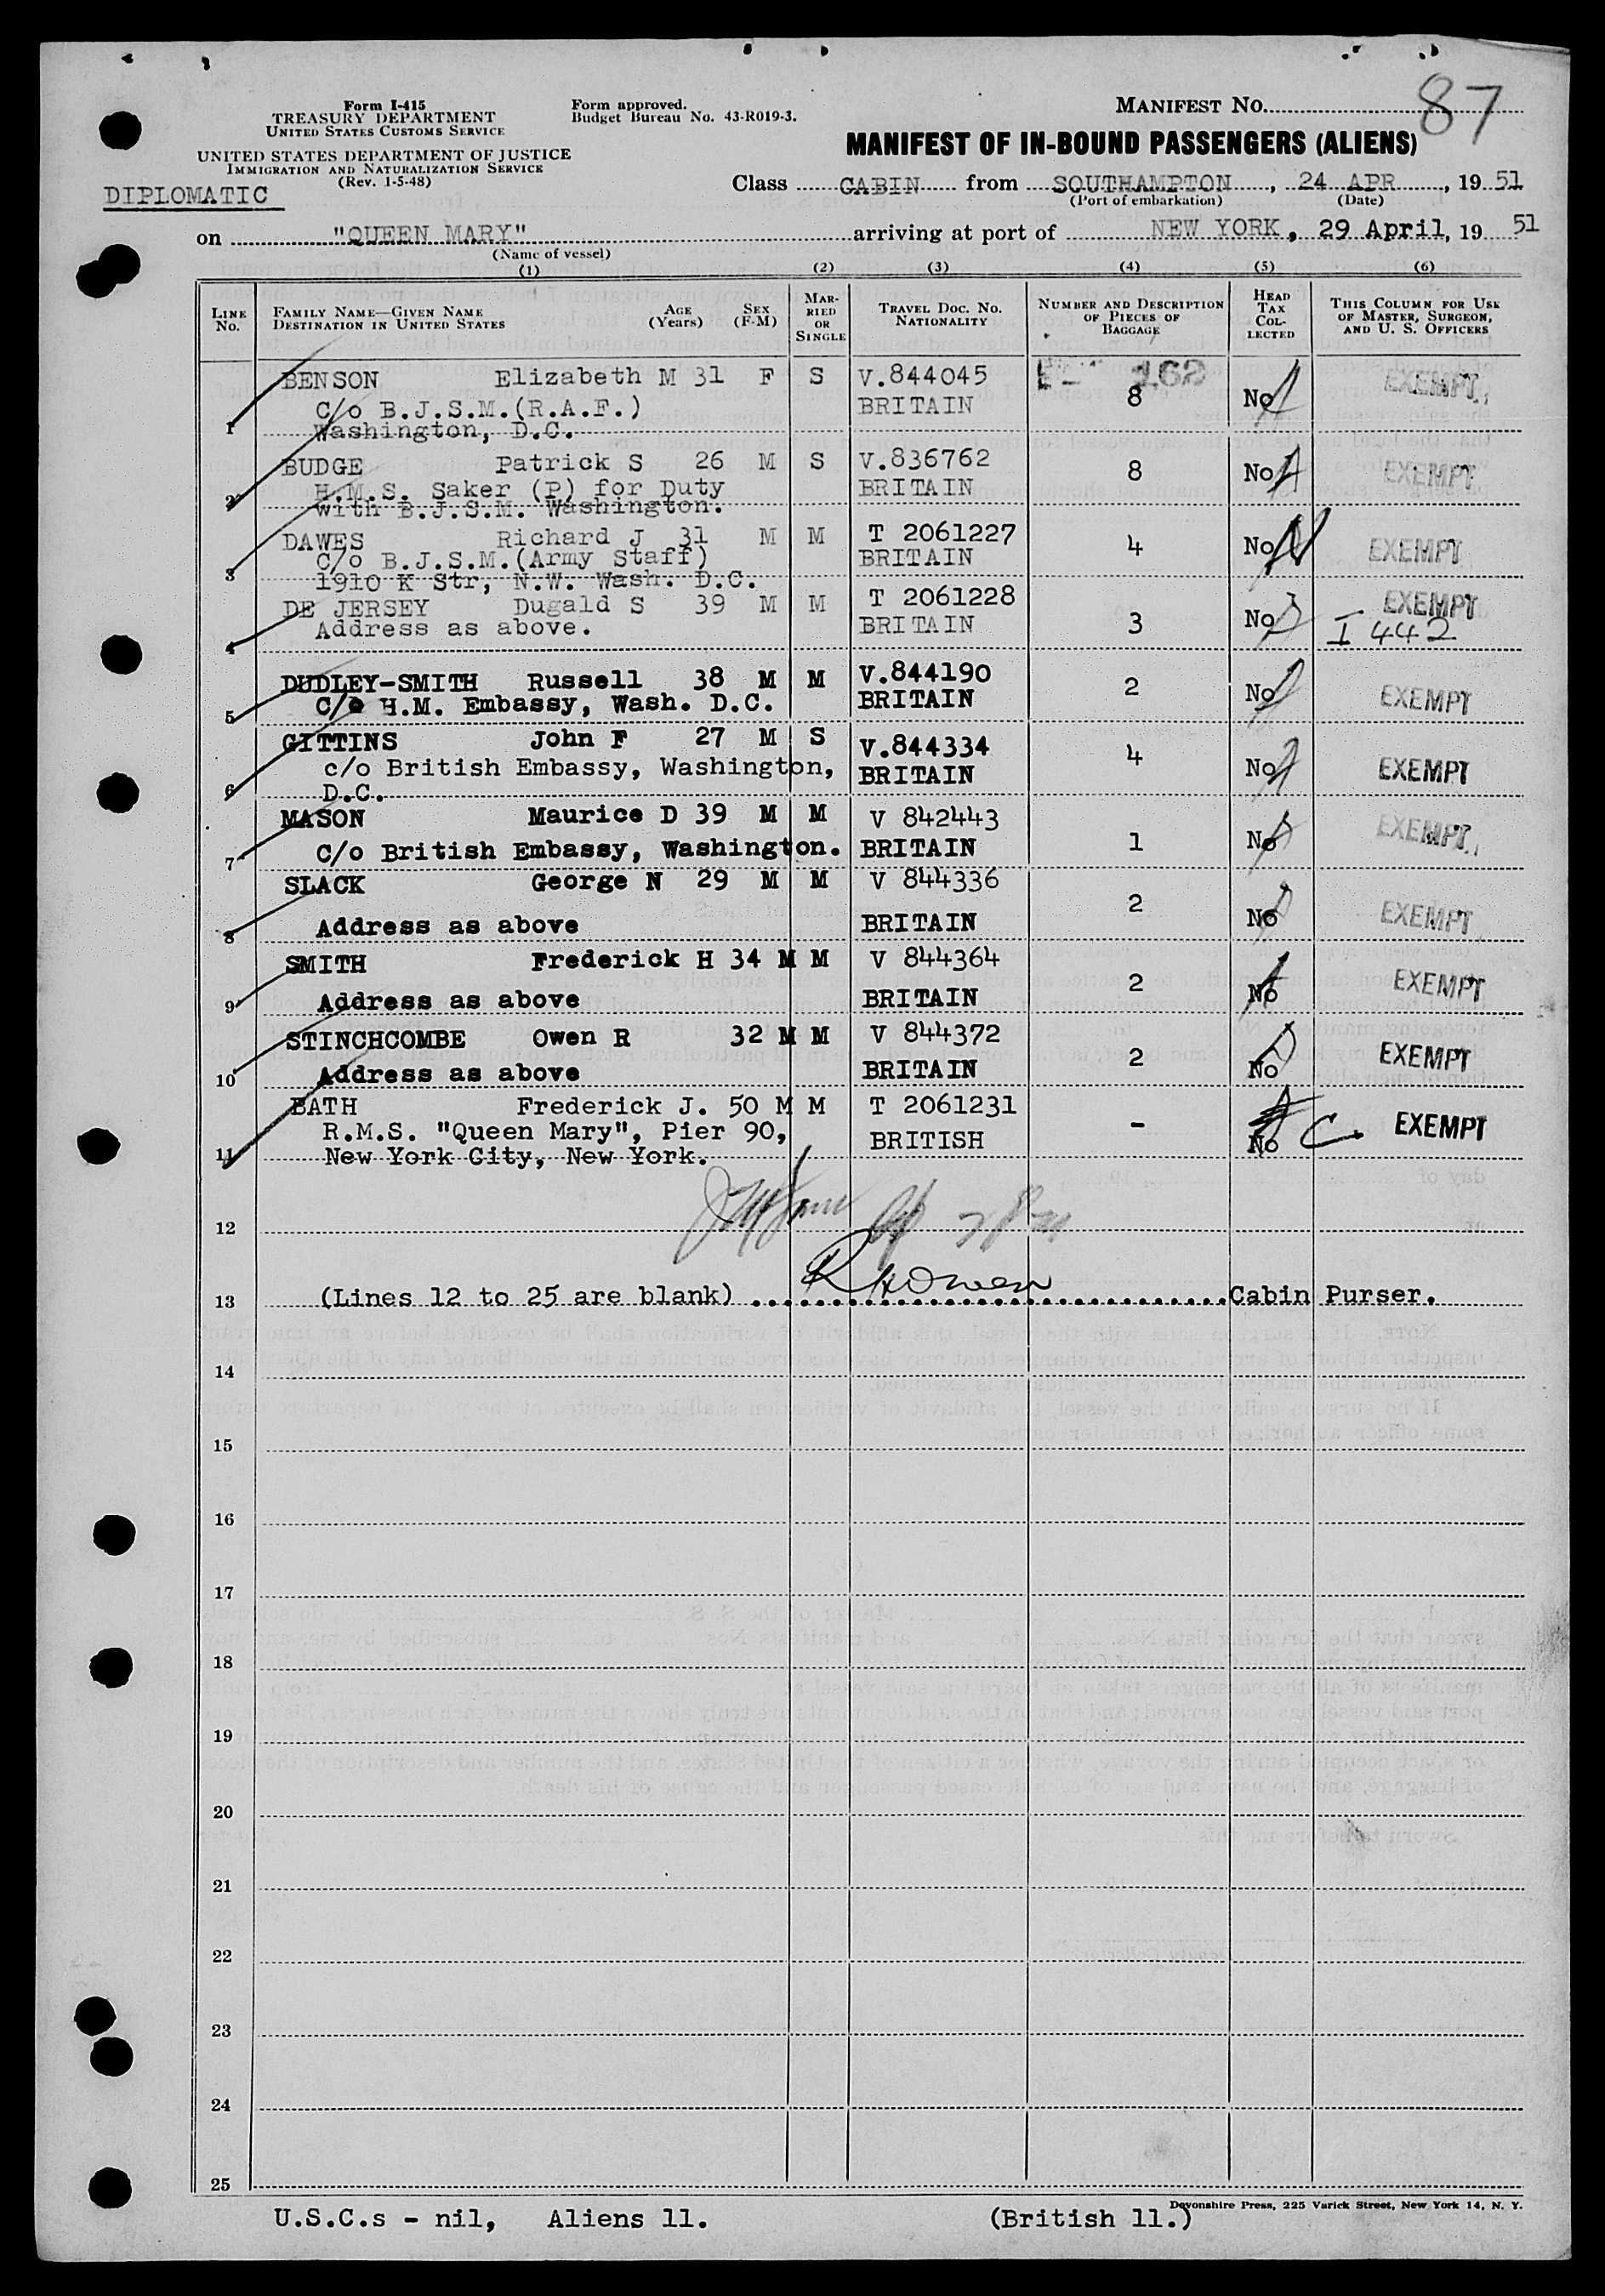 Form I-415
TREASURY DEPARTMENT
UNITED STATES CUSTOMS SERVICE
UNITED STATES DEPARTMENT OF JUSTICE
IMMIGRATION AND NATURALIZATION SERVICE
(Rev. 1-5-48)
Form approved.
Budget Bureau No. 43-R019-3.
MANIFEST NO. 87
MANIFEST OF IN-BOUND PASSENGERS (ALIENS)
DIPLOMATIC
Class CABIN from SOUTHAMPTON, 24 APR, 19 51
(Port of embarkation) (Date)
on "QUEEN MARY" arriving at port of NEW YORK, 29 April, 19 51
(Name of vessel)
(1) (2) (3) (4) (5) (6)
LINE No. FAMILY NAME—GIVEN NAME DESTINATION IN UNITED STATES AGE (Years) SEX (F-M) MARRIED OR SINGLE TRAVEL DOC. NO. NATIONALITY NUMBER AND DESCRIPTION OF PIECES OF BAGGAGE HEAD TAX COLLECTED THIS COLUMN FOR USE OF MASTER, SURGEON, AND U. S. OFFICERS
162
BENSON Elizabeth M 31 F S V.844045 8 No EXEMPT
C/o B.J.S.M.(R.A.F.) BRITAIN
1 Washington, D.C.
BUDGE Patrick S 26 M S V.836762 8 No EXEMPT
H.M.S. Saker (P) for Duty BRITAIN
2 with B.J.S.M. Washington.
DAWES Richard J 31 M M T 2061227 4 No EXEMPT
C/o B.J.S.M.(Army Staff) BRITAIN
3 1910 K Str, N.W. Wash. D.C.
DE JERSEY Dugald S 39 M M T 2061228 3 No EXEMPT
4 Address as above. BRITAIN I 442
DUDLEY-SMITH Russell 38 M M V.844190 2 No EXEMPT
5 C/o H.M. Embassy, Wash. D.C. BRITAIN
GITTINS John F 27 M S V.844334 4 No EXEMPT
c/o British Embassy, Washington, BRITAIN
6 D.C.
MASON Maurice D 39 M M V 842443 1 No EXEMPT
7 C/o British Embassy, Washington. BRITAIN
SLACK George N 29 M M V 844336 2 No EXEMPT
8 Address as above BRITAIN
SMITH Frederick H 34 M M V 844364 2 No EXEMPT
9 Address as above BRITAIN
STINCHCOMBE Owen R 32 M M V 844372 2 No EXEMPT
10 Address as above BRITAIN
BATH Frederick J. 50 M M T 2061231 - No C. EXEMPT
R.M.S. "Queen Mary", Pier 90, BRITISH
11 New York City, New York.
12
13 (Lines 12 to 25 are blank) RHOwen Cabin Purser.
14
15
16
17
18
19
20
21
22
23
24
25
Devonshire Press, 225 Varick Street, New York 14, N. Y.
U.S.C.s - nil, Aliens 11. (British 11.)